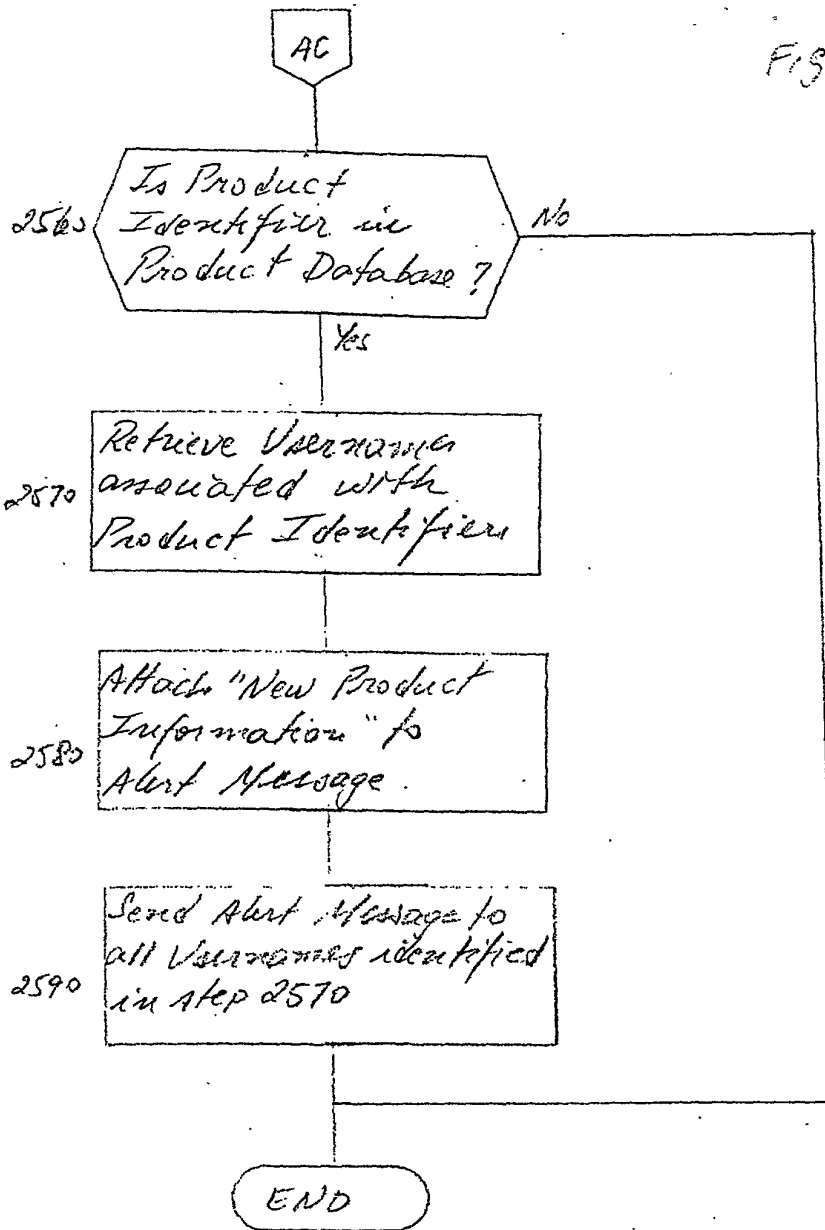 AC
Fig
2560
Is Product
Identifier in
Product Database?
No
Yes
2570
Retrieve Usernames
associated with
Product Identifier
2580
Attach "New Product
Information" to
Alert Message.
2590
Send Alert Message to
all Usernames identified
in step 2570
END